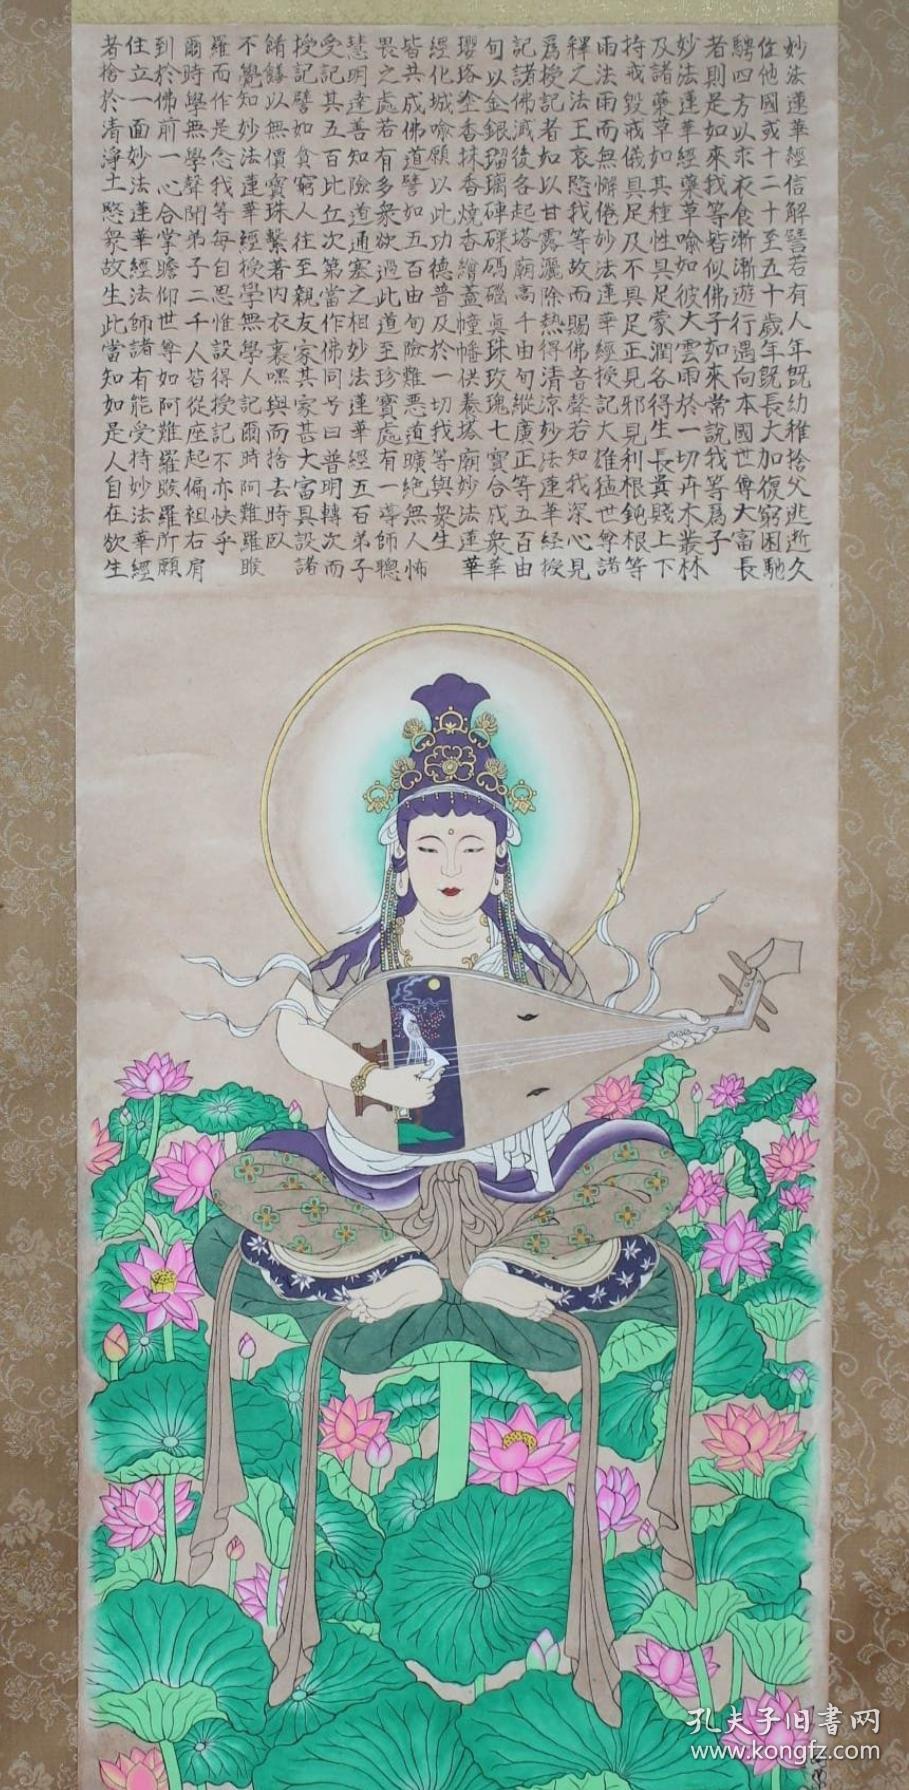 妙法蓮華經信解譬若有人年既幼稚捨父逃逝久
住他國或十二十至五十歲年既長大加復窮困馳
騁四方以求衣食漸漸遊行遇向本國世尊大富長
者則是如來我等皆似佛子如來常說我等爲子
妙法蓮華經藥草喻如彼大雲雨於一切卉木叢林
及諸藥草如其種性具足蒙潤各得生長貴賤上下
持戒毀戒儀具足及不具足正見邪見利根鈍根等
雨法雨而無懈倦妙法蓮華經授記大雄猛世尊諸
釋之法王哀愍我等故而賜佛音聲若知我深心見
爲授記者如以甘露灑除熱得清涼妙法蓮華経授
記諸佛滅後各起塔廟高千由旬縱廣正等五百由
旬以金銀瑠璃硨磲碼碯眞珠玫瑰七寶合成衆華
瓔珞塗香抹香燒香繒蓋幢幡供養塔廟妙法蓮華
經化城喻願以此功德普及於一切我等與衆生
皆共成佛道譬如五百由旬險難惡道曠絕無人怖
畏之處若有多衆欲過此道至珍寶處有一導師聰
慧明達善知險道通塞之相妙法蓮華經五百弟子
受記其五百比丘次第當作佛同号曰普明轉次而
授記譬如貧窮人往至親友家其家甚大富具設諸
餚饍以無價寶珠繫著内衣裏嘿與而捨去時臥
不覺知妙法蓮華經授學無學人記爾時阿難羅睺
羅而作是念我等每自思惟設得授記不亦快乎
爾時學無學聲聞弟子二千人皆從座起偏袒右肩
到於佛前一心合掌瞻仰世尊如阿難羅睺羅所願
住立一面妙法蓮華經法師諸有能受持妙法華經
者捨於清淨土愍衆故生此當知如是人自在欲生
孔夫子旧書网
www.kongfz.com